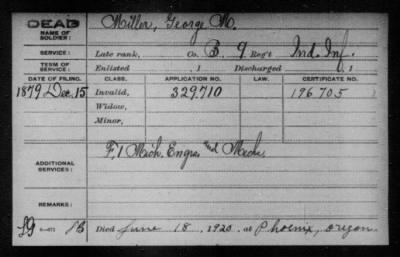 DEAD
NAME OF SOLDIER: Miller, George M.
SERVICE: Late rank, Co. B. 9 Reg't Ind. Inf.
TERM OF SERVICE: Enlisted , 1 Discharged , 1
DATE OF FILING. CLASS. APPLICATION NO. LAW. CERTIFICATE NO.
1879 Dec. 15 Invalid, 329,710 196705
Widow,
Minor,
ADDITIONAL SERVICES: F, 1 Mich. Engrs and Mech.
REMARKS:
Died June 18, 1920, at Phoenix, Oregon.